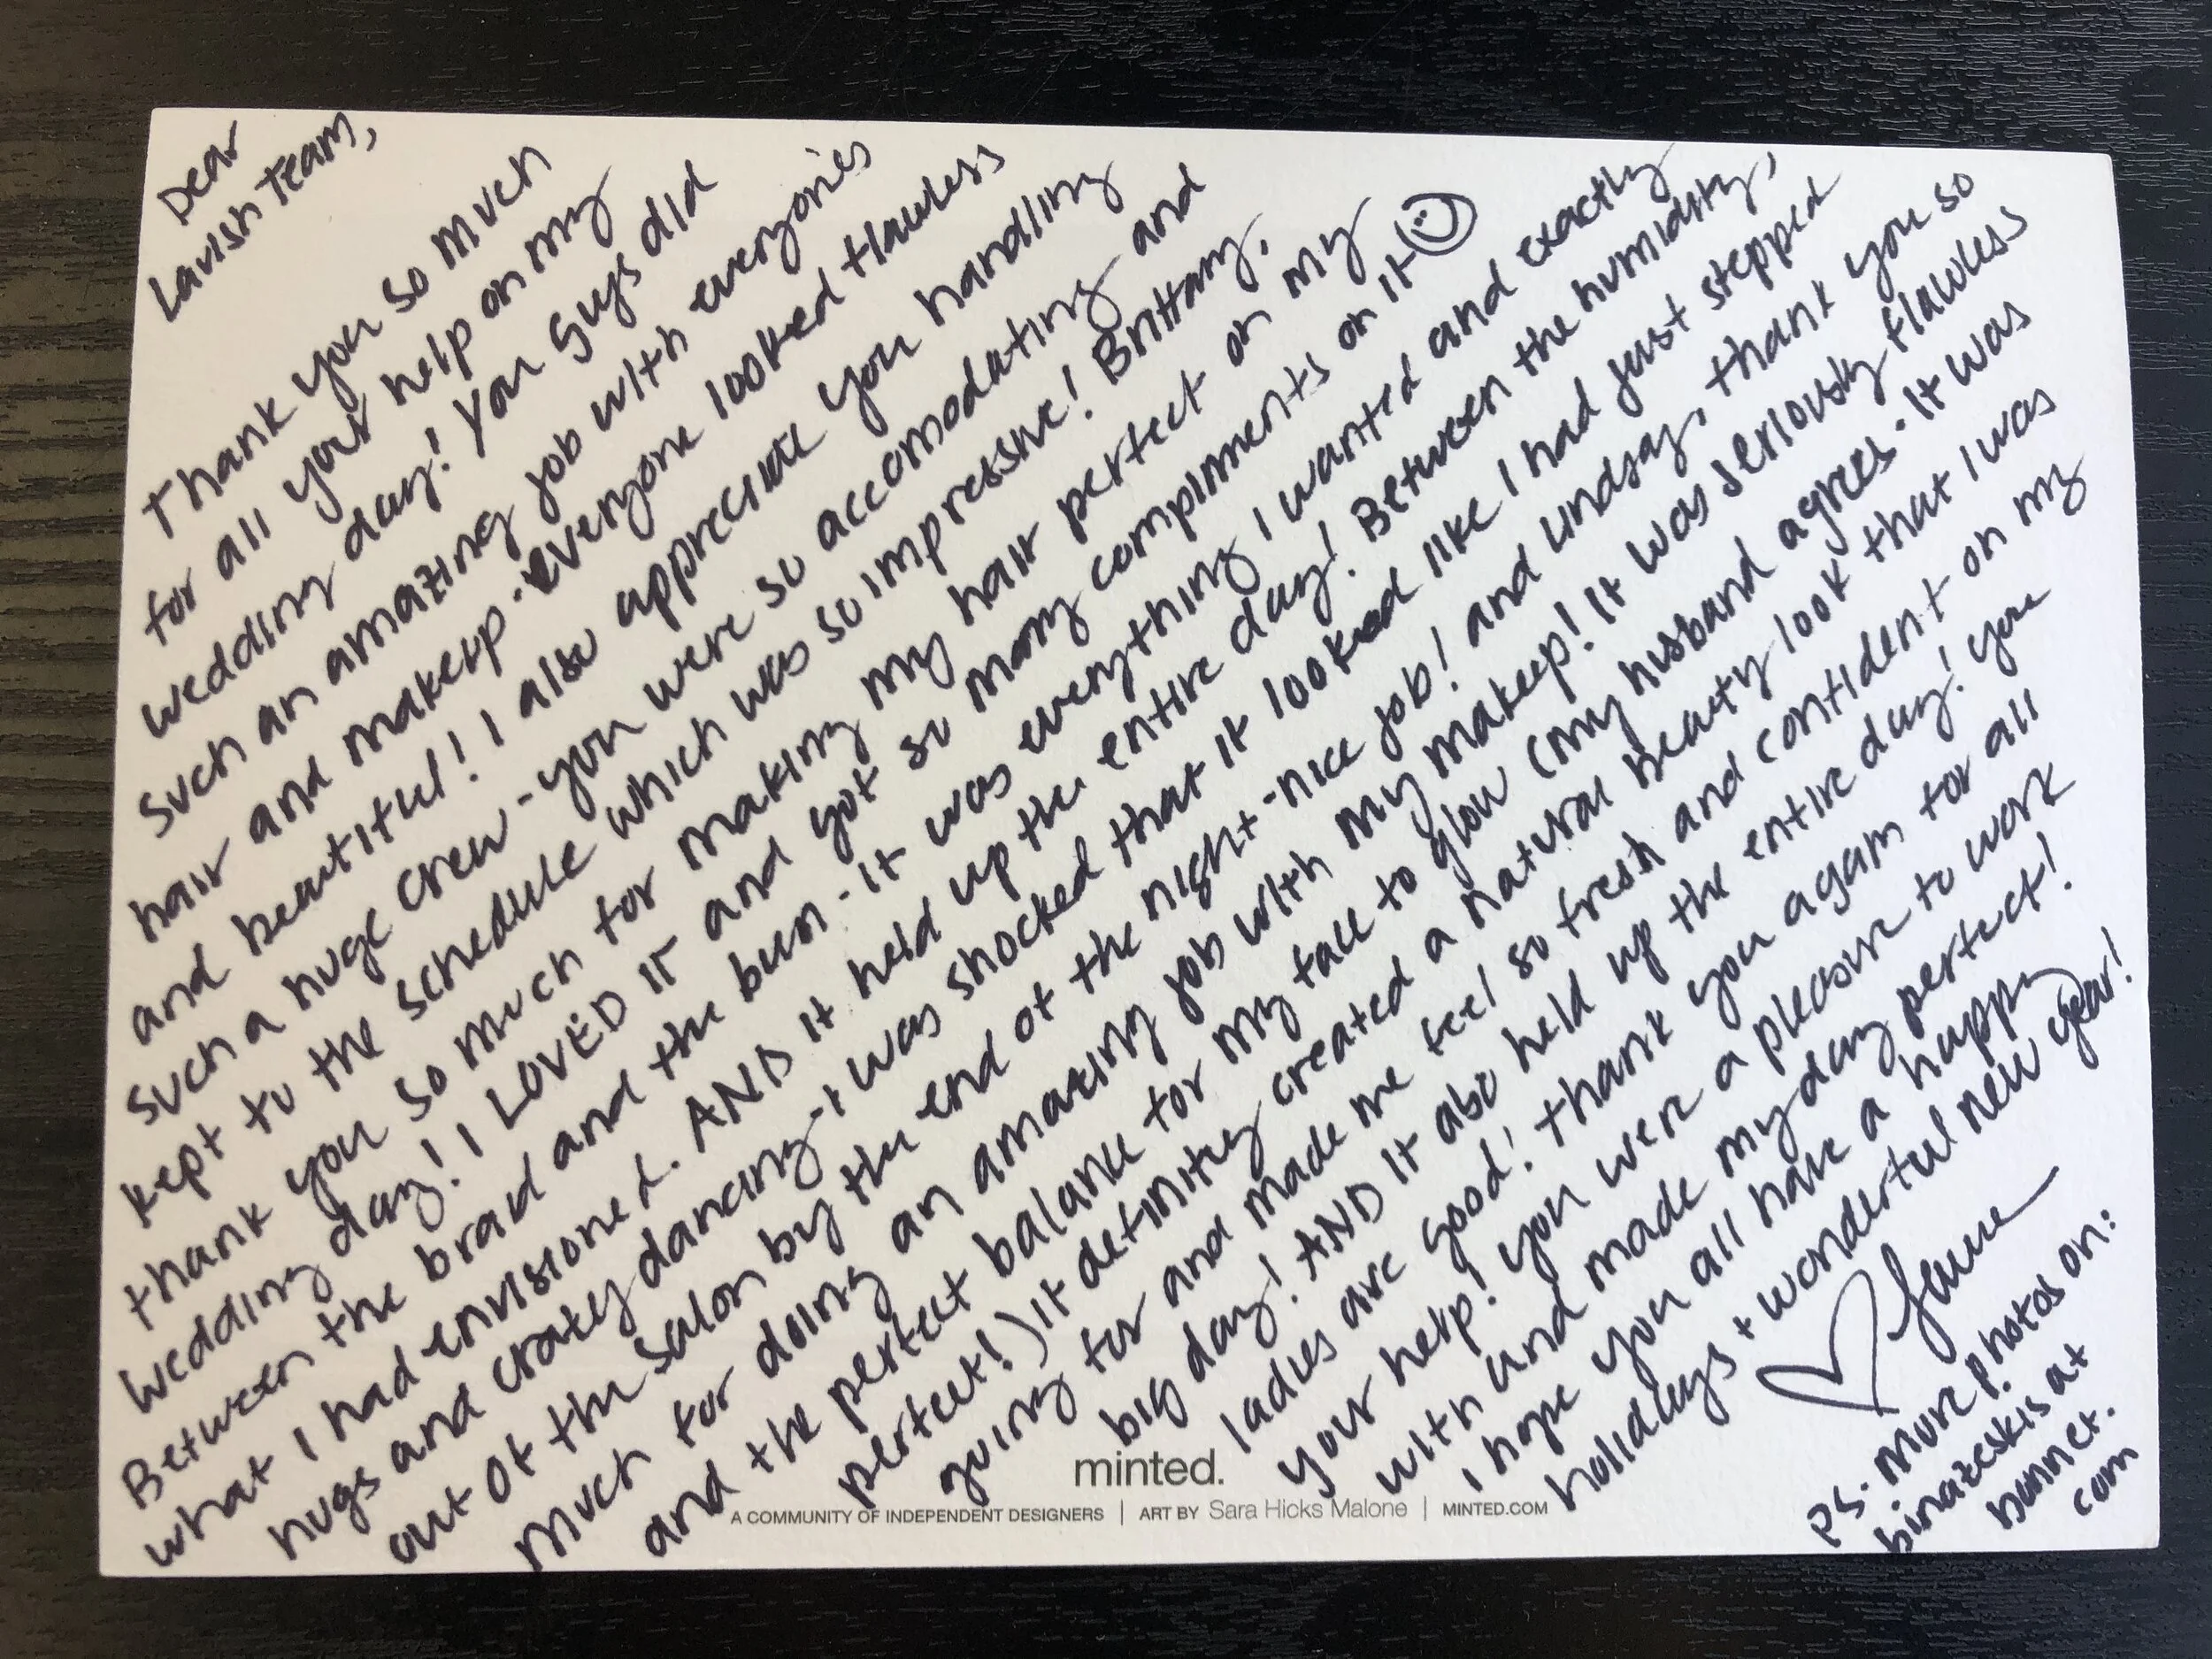 Dear
Lavish Team,
Thank you so much
for all your help on my
wedding day! You guys did
such an amazing job with everyones
hair and makeup. everyone looked flawless
and beautiful! I also appreciate you handling
such a huge crew - you were so accomodating and
kept to the schedule which was so impressive! Brittany,
thank you so much for making my hair perfect on my
wedding day! I LOVED IT and got so many compliments on it
Between the braid and the bun - it was everything I wanted and exactly
what I had envisioned. AND it held up the entire day! Between the humidity,
hugs and crazy dancing - I was shocked that it looked like I had just stepped
out of the salon by the end of the night - nice job! and Lindsay, thank you so
much for doing an amazing job with my makeup! It was seriously flawless
and the perfect balance for my fall to glow (my husband agrees. It was
perfect!) it definitley created a natural beauty look that I was
going for and made me feel so fresh and confident on my
big day! AND it also held up the entire day! You
ladies are good! Thank you again for all
your help! You were a pleasure to work
with and made my day perfect!
I hope you all have a happy
holidays + wonderful new year!
PS. more photos on:
binazeskis at
hunnet.
com
minted.
A COMMUNITY OF INDEPENDENT DESIGNERS | ART BY Sara Hicks Malone | MINTED.COM